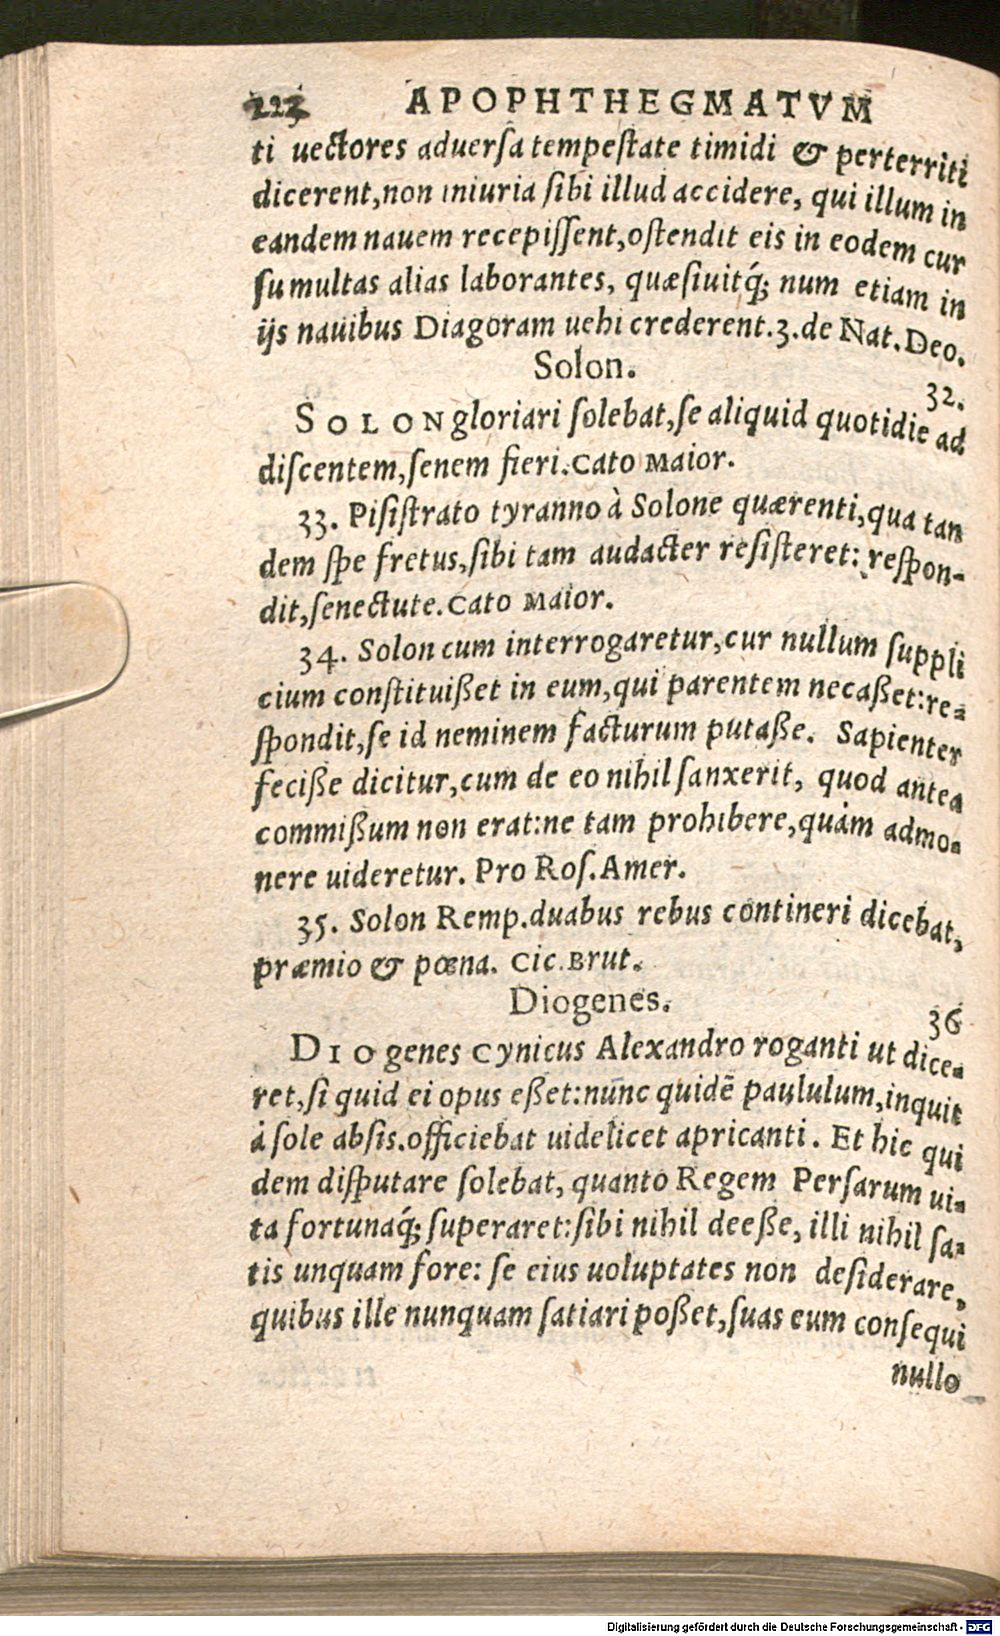 223 APOPHTHEGMATVM
ti uectores aduerſa tempeſtate timidi & perterriti
dicerent, non iniuria ſibi illud accidere, qui illum in
eandem nauem recepiſſent, oſtendit eis in eodem cur
ſu multas alias laborantes, quæſiuitq́; num etiam in
ijs nauibus Diagoram uehi crederent. 3. de Nat. Deo.
Solon.
32.
SOLON gloriari ſolebat, ſe aliquid quotidie ad
diſcentem, ſenem fieri. Cato Maior.
33. Piſiſtrato tyranno à Solone quærenti, qua tan
dem ſpe fretus, ſibi tam audacter reſiſteret: reſpon-
dit, ſenectute. Cato Maior.
34. Solon cum interrogaretur, cur nullum ſuppli
cium conſtituißet in eum, qui parentem necaßet: re-
ſpondit, ſe id neminem facturum putaße. Sapienter
feciße dicitur, cum de eo nihil ſanxerit, quod antea
commißum non erat: ne tam prohibere, quàm admo-
nere uideretur. Pro Roſ. Amer.
35. Solon Remp. duabus rebus contineri dicebat,
præmio & pœna. Cic. Brut.
Diogenes.
36
DIOgenes Cynicus Alexandro roganti ut dice-
ret, ſi quid ei opus eßet: nunc quidē paululum, inquit
à ſole abſis. officiebat uidelicet apricanti. Et hic qui
dem diſputare ſolebat, quanto Regem Perſarum ui-
ta fortunaq́; ſuperaret: ſibi nihil deeße, illi nihil ſa-
tis unquam fore: ſe eius uoluptates non deſiderare,
quibus ille nunquam ſatiari poßet, ſuas eum conſequi
nullo
Digitalisierung gefördert durch die Deutsche Forschungsgemeinschaft - DFG